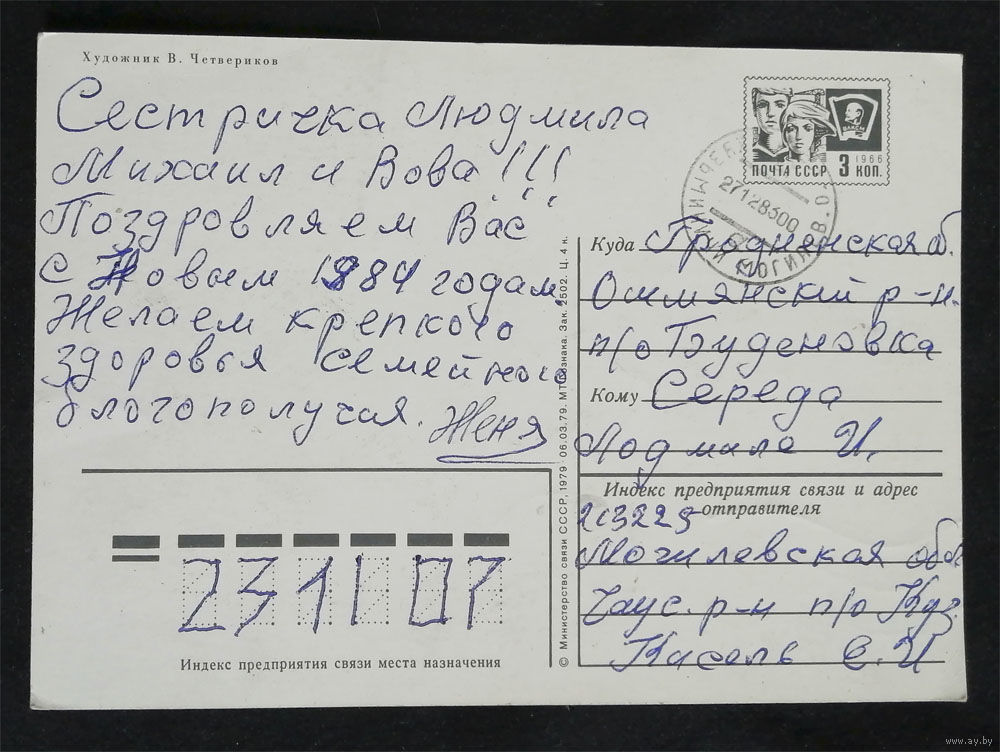 Художник В. Четвериков
Сестричка Людмила
Михаил и Вова!!!
Поздровляем Вас
с Новым 1984 годам,
Желаем крепкого
здоровья семейного
благополучая. Женя
ПОЧТА СССР 3 КОП.
1966
ВЛКСМ
Куда Гродненская об.
Ошмянский р-н.
п/о Буденовка
Кому Середа
Людмиле И.
Индекс предприятия связи и адрес отправителя
213225
Могилевская обл
Чаус. р-н п/о Куз.
Кисель Е. И
231107
Индекс предприятия связи места назначения
© Министерство связи СССР, 1979 06.03.79. МТ Гознака. Зак. 2502. Ц. 4 к.
www.ay.by